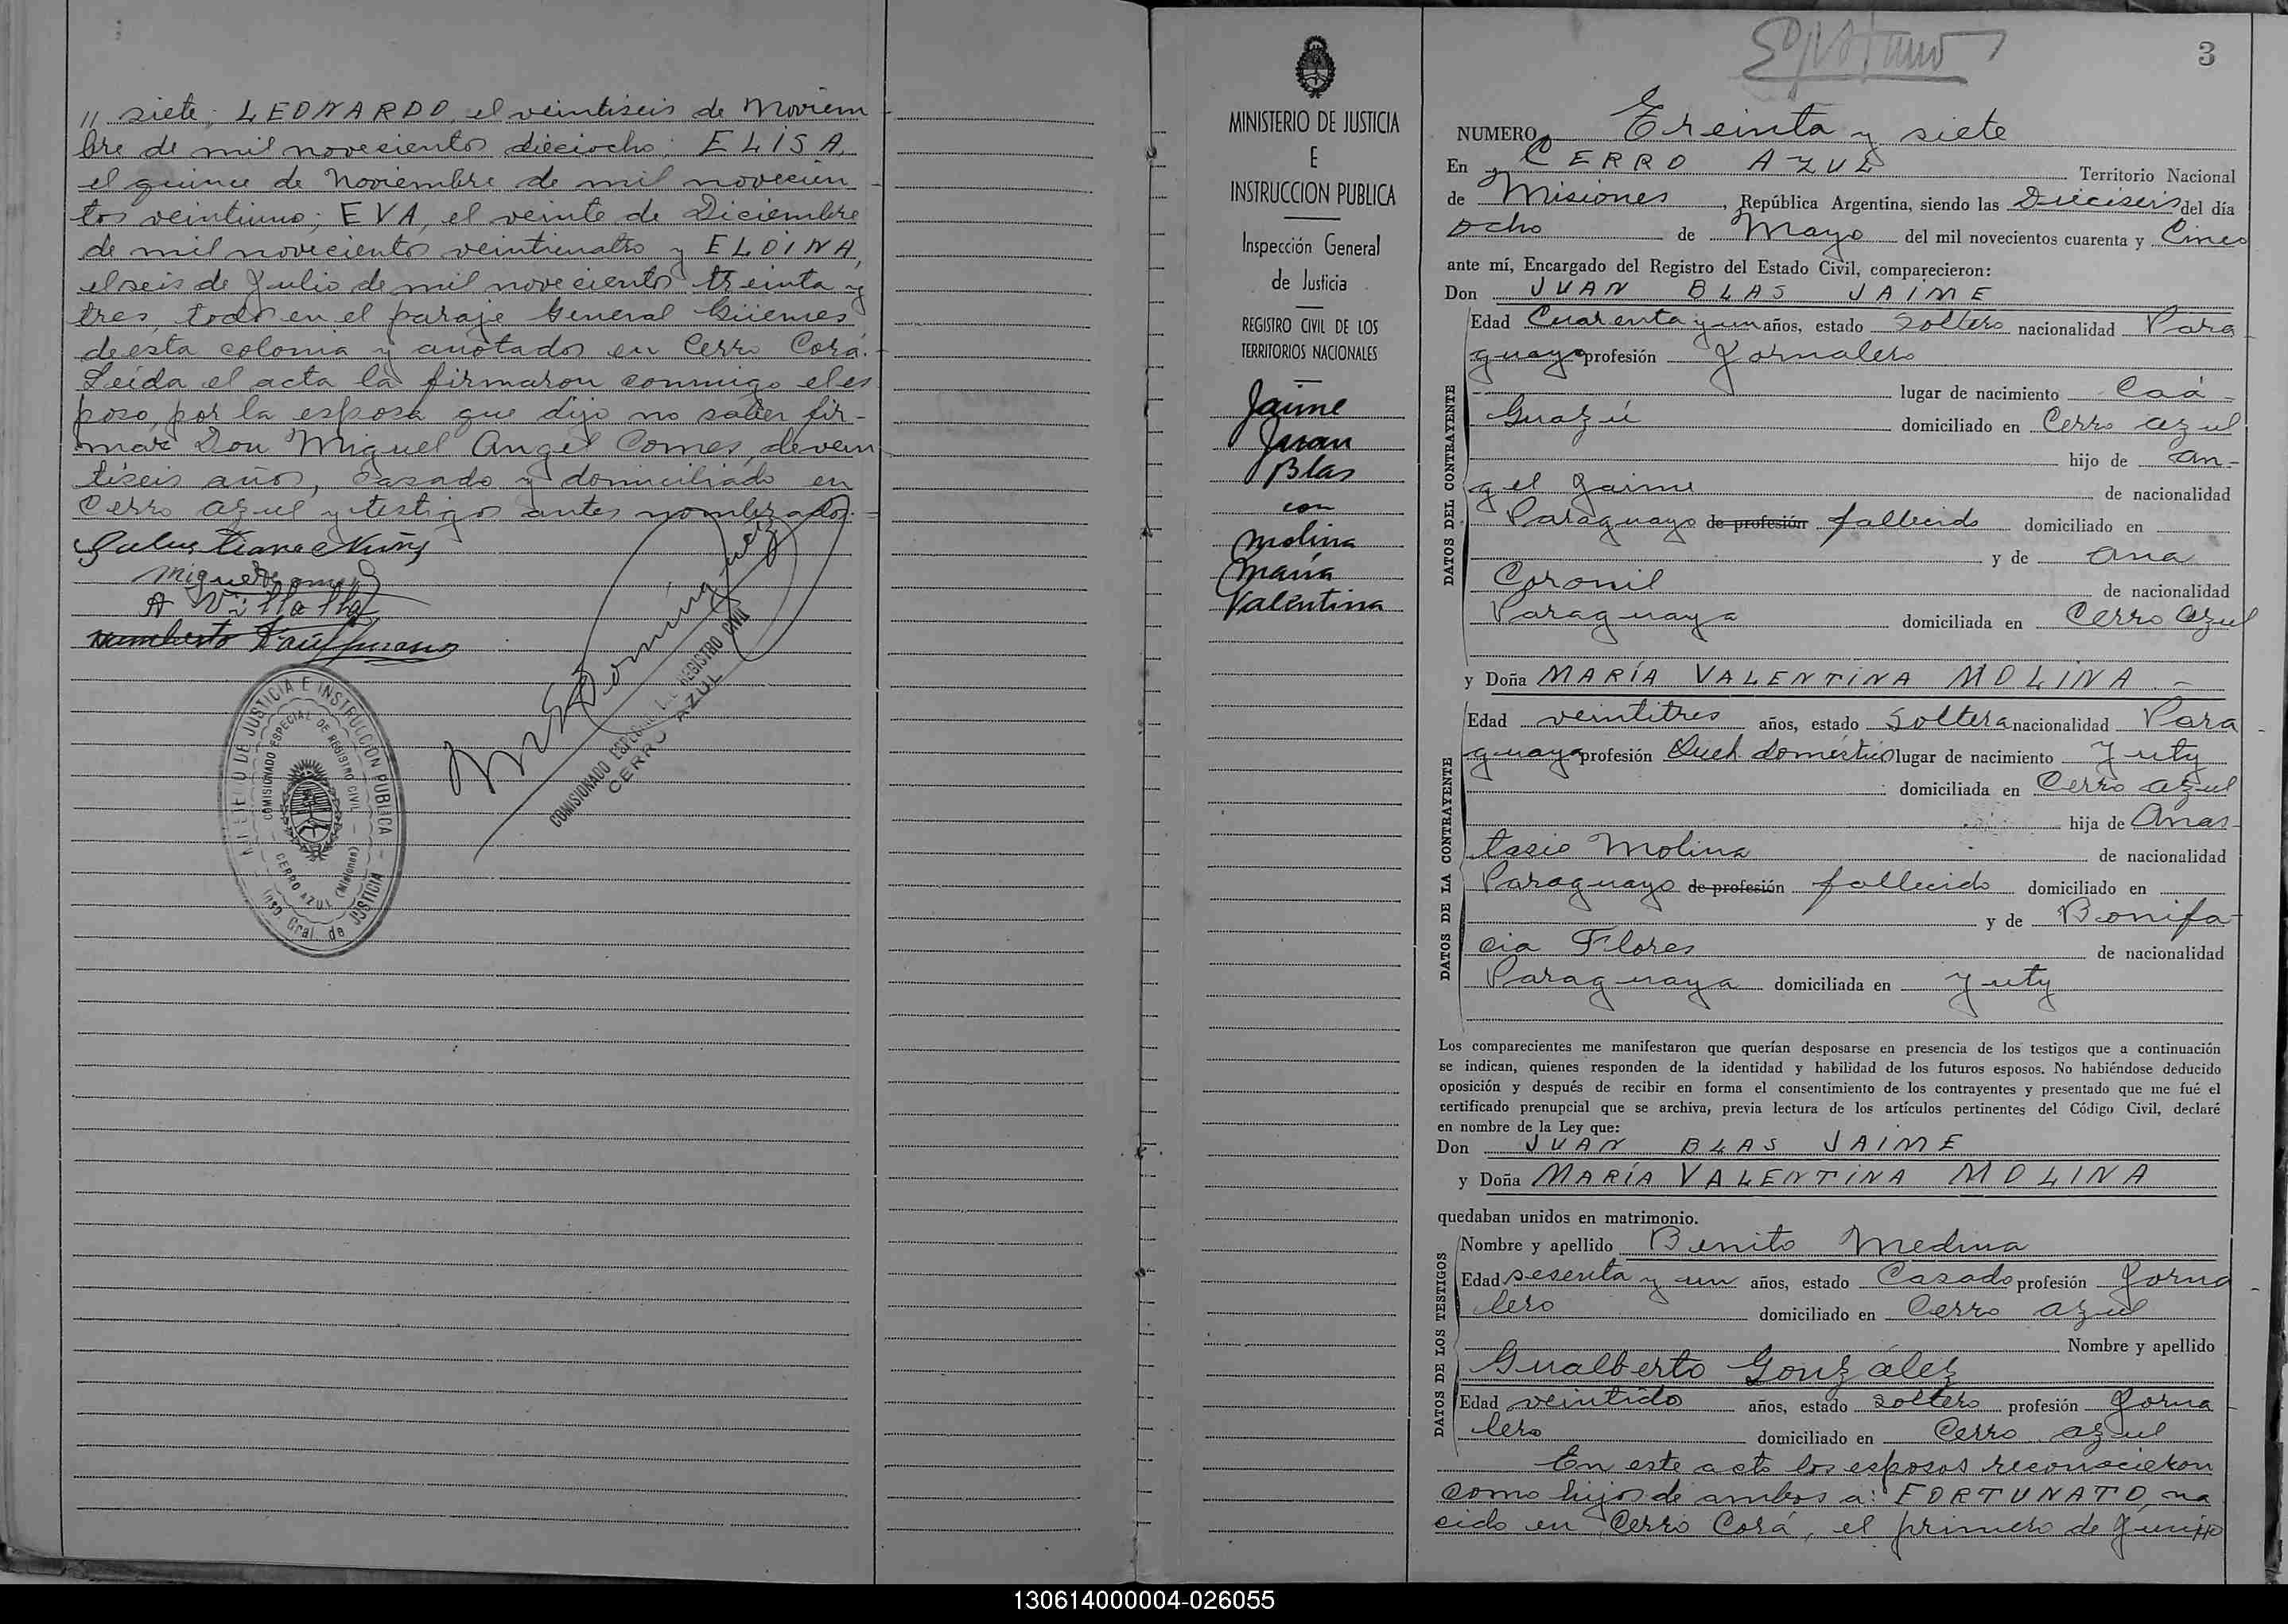 // siete; LEONARDO, el veintiseis de Noviem
bre de mil novecientos dieciocho; ELISA,
el quince de Noviembre de mil novecien
tos veintiuno; EVA, el veinte de Diciembre
de mil novecientos veinticuatro y ELOINA,
el seis de Julio de mil novecientos treinta y
tres, todos en el paraje General Güemes
de esta colonia y anotados en Cerro Corá.
Leída el acta la firmaron conmigo el es
poso, por la esposa que dijo no saber fir-
mar Don Miguel Angel Comes, de vein
tiseis años, casado y domiciliado en
Cerro Azul y testigos antes nombrados.
A Villalla
COMISIONADO ESPECIAL DEL REGISTRO CIVIL
CERRO AZUL
MINISTERIO DE JUSTICIA E INSTRUCCIÓN PUBLICA
COMISIONADO ESPECIAL DE REGISTRO CIVIL
CERRO AZUL (Misiones)
Insp. Gral. de JUSTICIA
MINISTERIO DE JUSTICIA
E
INSTRUCCION PUBLICA
Inspección General
de Justicia
REGISTRO CIVIL DE LOS
TERRITORIOS NACIONALES
Jaime
Juan
Blas
con
Molina
María
Valentina
3
NUMERO Treinta y siete
En CERRO AZUL Territorio Nacional
de Misiones, República Argentina, siendo las Dieciseis del día
ocho de Mayo del mil novecientos cuarenta y Cinco
ante mí, Encargado del Registro del Estado Civil, comparecieron:
Don JUAN BLAS JAIME
DATOS DEL CONTRAYENTE
Edad Cuarenta y un años, estado Soltero nacionalidad Para
guayo profesión Jornalero
lugar de nacimiento Caá-
Guazú domiciliado en Cerro Azul
hijo de An-
gel Jaime de nacionalidad
Paraguayo de profesión fallecido domiciliado en
y de Ana
Coronil de nacionalidad
Paraguaya domiciliada en Cerro Azul
y Doña MARÍA VALENTINA MOLINA.-
DATOS DE LA CONTRAYENTE
Edad veintitres años, estado Soltera nacionalidad Para
guaya profesión Queh. domésticos lugar de nacimiento Yuty
domiciliada en Cerro Azul
hija de Anas-
tasio Molina de nacionalidad
Paraguayo de profesión fallecido domiciliado en
y de Bonifa-
cia Flores de nacionalidad
Paraguaya domiciliada en Yuty
Los comparecientes me manifestaron que querían desposarse en presencia de los testigos que a continuación
se indican, quienes responden de la identidad y habilidad de los futuros esposos. No habiéndose deducido
oposición y después de recibir en forma el consentimiento de los contrayentes y presentado que me fué el
certificado prenupcial que se archiva, previa lectura de los artículos pertinentes del Código Civil, declaré
en nombre de la Ley que:
Don JUAN BLAS JAIME
y Doña MARÍA VALENTINA MOLINA
quedaban unidos en matrimonio.
DATOS DE LOS TESTIGOS
Nombre y apellido Benito Medina
Edad sesenta y un años, estado Casado profesión Jorna
lero domiciliado en Cerro Azul
Nombre y apellido
Gualberto González
Edad veintido años, estado soltero profesión Jorna
lero domiciliado en Cerro Azul
En este acto los esposos reconocieron
como hijos de ambos a: FORTUNATO, na
cido en Cerro Corá, el primero de Junio
130614000004-026055